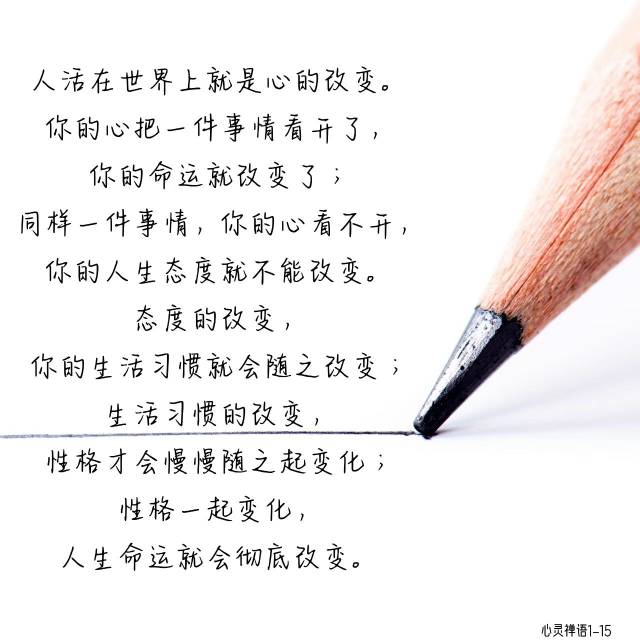 人活在世界上就是心的改变。
你的心把一件事情看开了，
你的命运就改变了；
同样一件事情，你的心看不开，
你的人生态度就不能改变。
态度的改变，
你的生活习惯就会随之改变；
生活习惯的改变，
性格才会慢慢随之起变化；
性格一起变化，
人生命运就会彻底改变。
心灵禅语1-15